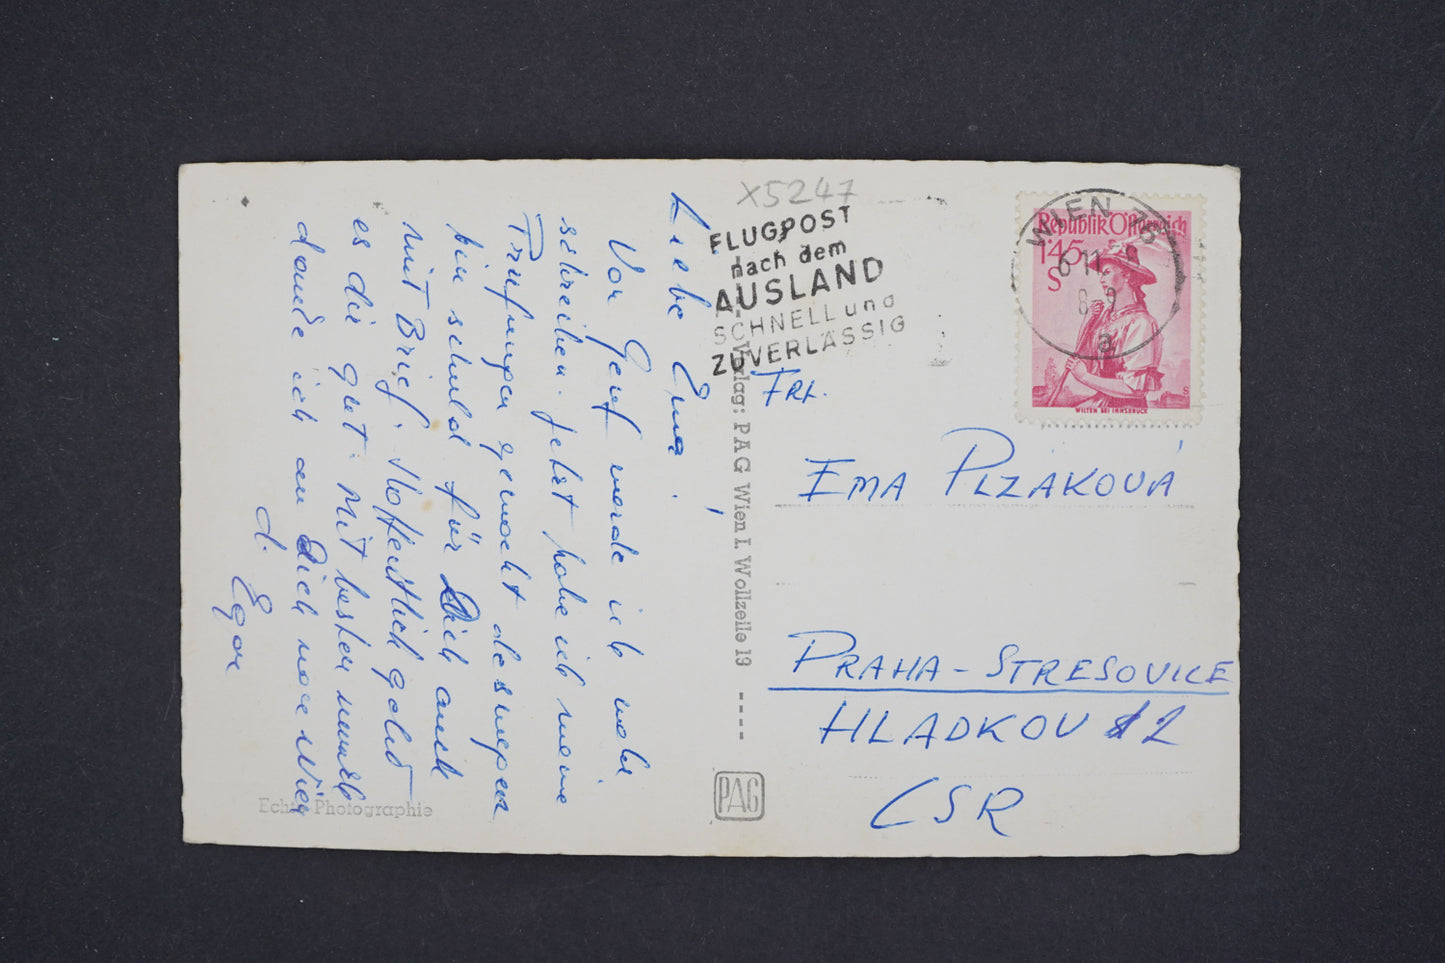 X5247
FLUGPOST
nach dem
AUSLAND
SCHNELL und
ZUVERLÄSSIG
WIEN
6 11
8-9
a
Republik Österreich
1·45
S
WILTEN BEI INNSBRUCK
Liebe Ema!
Vor Genf werde ich mehr
schreiben. Jetzt habe ich meine
Prüfungen gemacht deswegen
bin schuld für Dich auch
mit Brief. Hoffentlich geht
es dir gut. Mit besten
ich an Dich Wien
d. Egon
Echte Photographie
Verlag: PAG Wien I. Wollzeile 19
PAG
FRL.
EMA PLZÁKOVÁ
PRAHA-STRESOVICE
HLADKOV 12
CSR